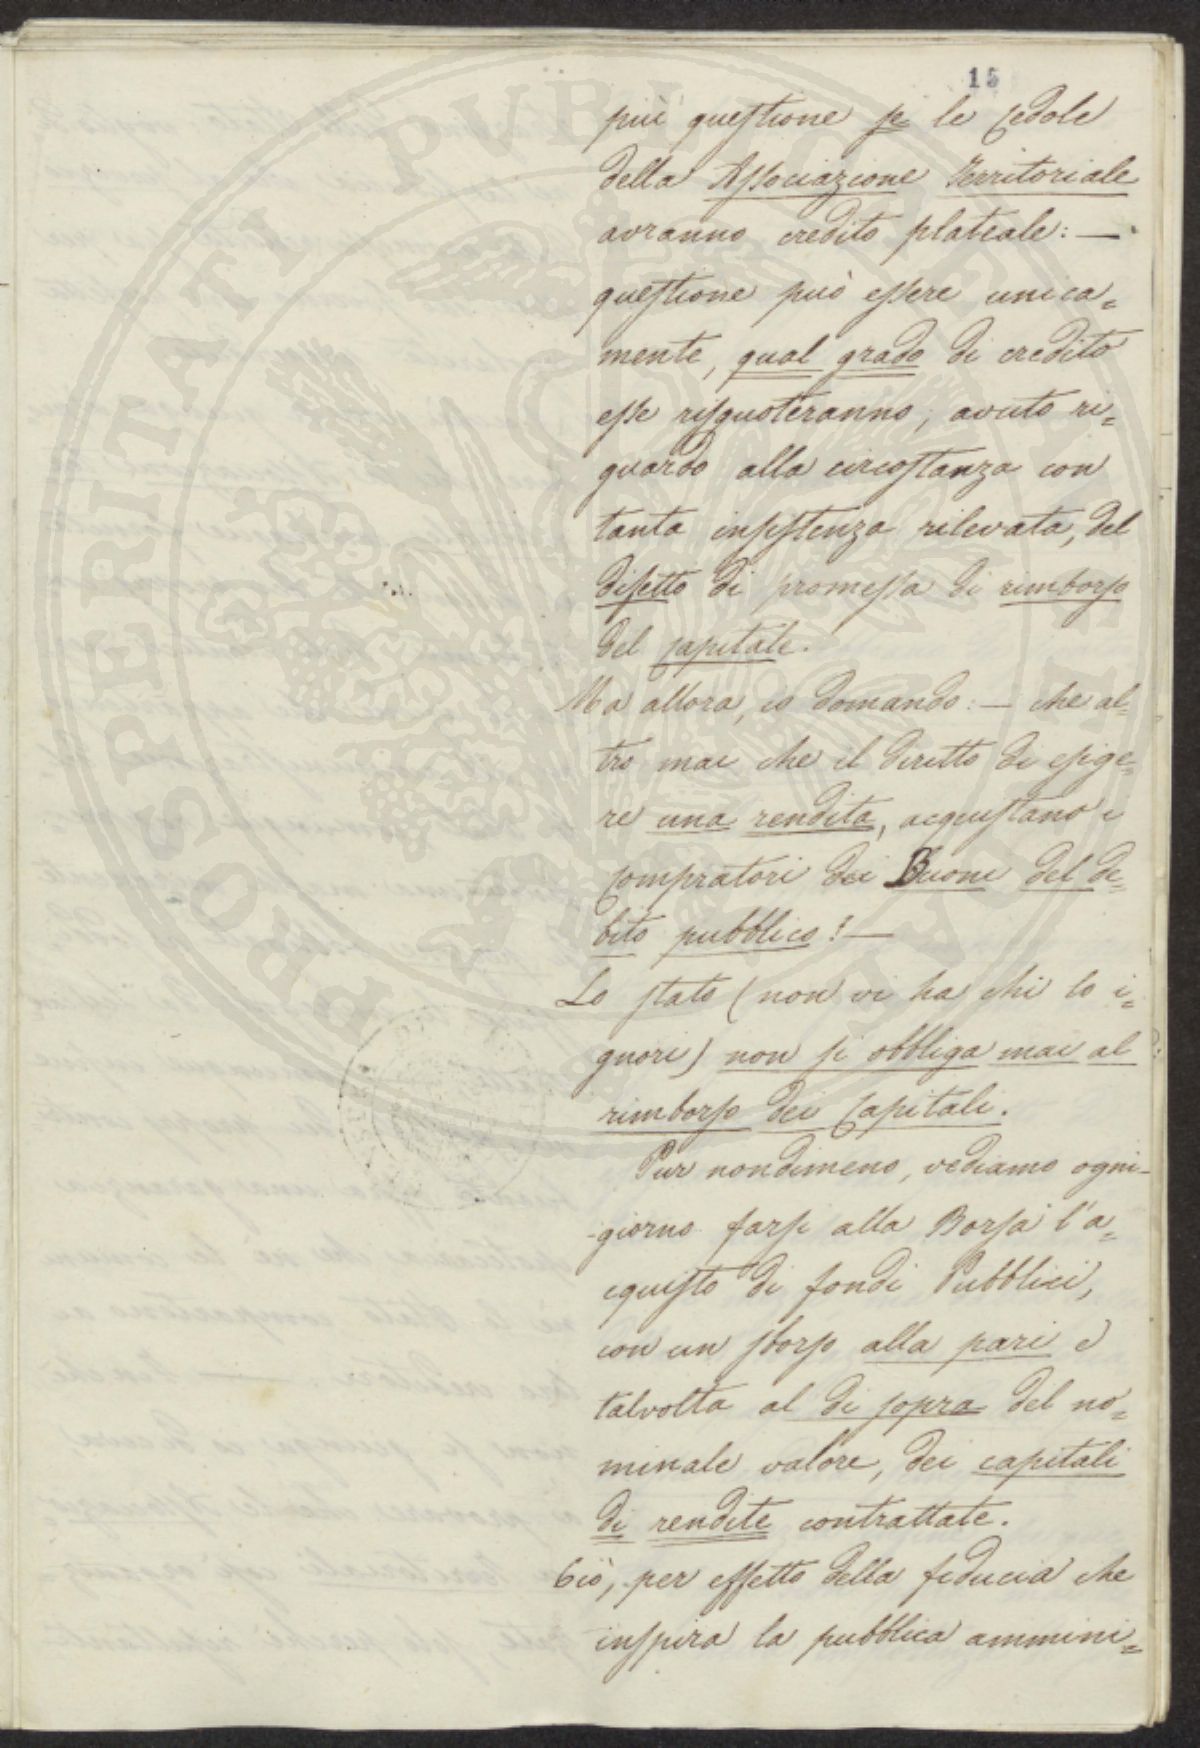 15
più questione se le cedole
della Associazione Territoriale
avranno credito plateale: —
questione può essere unica=
mente, qual grado di credito
esse risquoteranno, avuto ri=
guardo alla circostanza con
tanta insistenza rilevata, del
difetto di promessa di rimborso
del capitale.
Ma allora, io domando: — che al=
tro mai che il diritto di esige=
re una rendita, acquistano i
compratori dei Buoni del de=
bito pubblico? —
Lo stato (non vi ha chi lo i=
gnori) non si obbliga mai al
rimborso dei Capitali.
Pur nondimeno, vediamo ogni-
-giorno farsi alla Borsa l'a=
cquisto di fondi Pubblici,
con un sborso alla pari e
talvolta al di sopra del no=
minale valore, dei capitali
di rendite contrattate.
Ciò, per effetto della fiducia che
inspira la pubblica ammini=
PROSPERITATI PUBLICAE